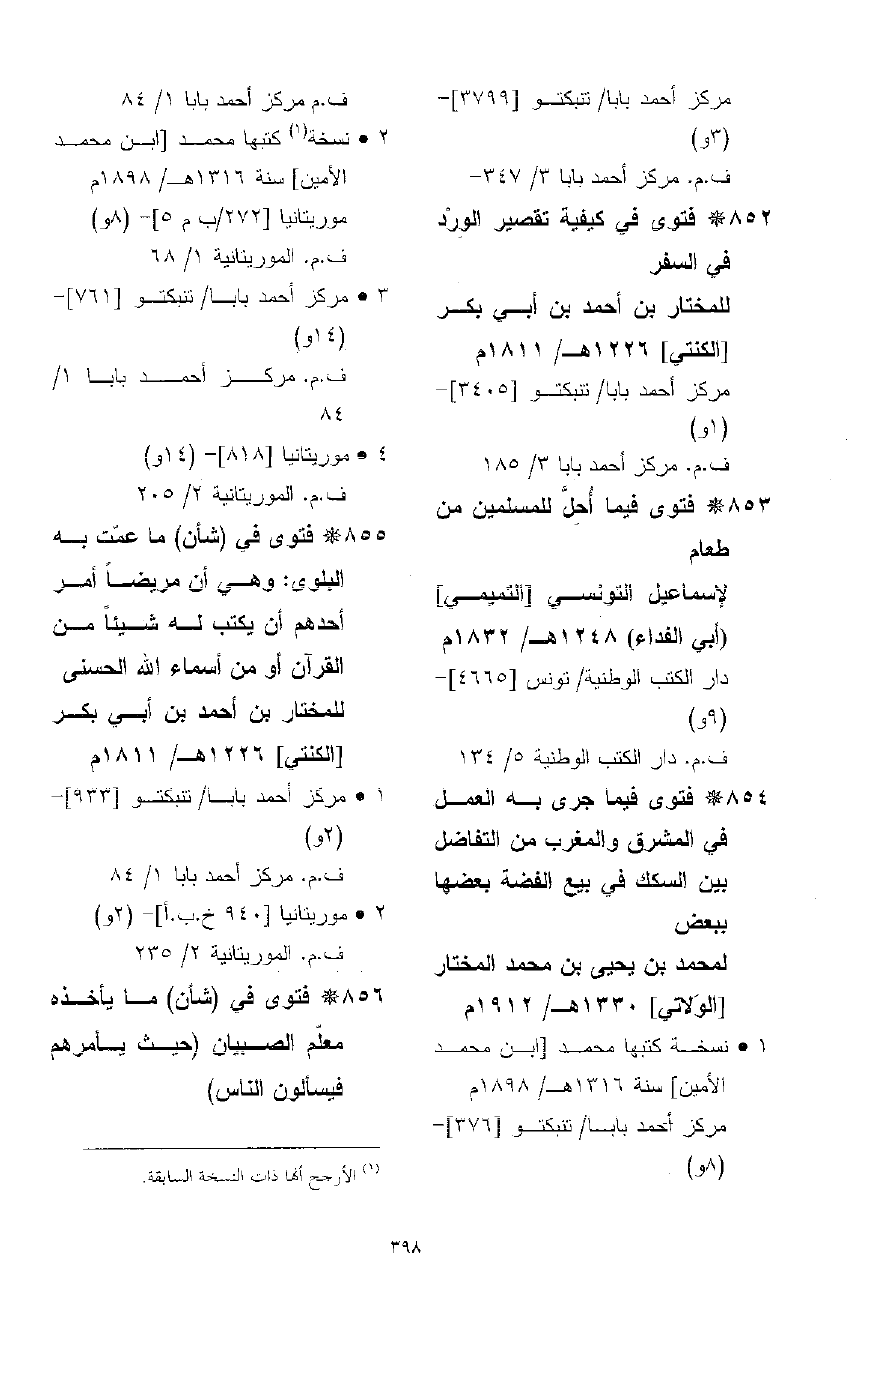 مركز أحمد بابا/ تنبكتو [٣٧٩٩]-
(٣و)
ف.م. مركز أحمد بابا ٣/ ٣٤٧-
٨٥٢* فتوى في كيفية تقصير الورْد
في السفر
للمختار بن أحمد بن أبي بكر
[الكنتي] ١٢٢٦هـ/ ١٨١١م
مركز أحمد بابا/ تنبكتو [٣٤٠٥]-
(١و)
ف.م. مركز أحمد بابا ٣/ ١٨٥
٨٥٣* فتوى فيما أُحلَّ للمسلمين من
طعام
لإسماعيل التونسي [التميمي]
(أبي الفداء) ١٢٤٨هـ/ ١٨٣٢م
دار الكتب الوطنية/ تونس [٤٦٦٥]-
(٩و)
ف.م. دار الكتب الوطنية ٥/ ١٣٤
٨٥٤* فتوى فيما جرى به العمل
في المشرق والمغرب من التفاضل
بين السكك في بيع الفضة بعضها
ببعض
لمحمد بن يحيى بن محمد المختار
[الوَلاتي] ١٣٣٠هـ/ ١٩١٢م
١ • نسخة كتبها محمد [ابن محمد
الأمين] سنة ١٣١٦هـ/ ١٨٩٨م
مركز أحمد بابا/ تنبكتو [٣٧٦]-
(٨و)
ف.م مركز أحمد بابا ١/ ٨٤
٢ • نسخة(١) كتبها محمد [ابن محمد
الأمين] سنة ١٣١٦هـ/ ١٨٩٨م
موريتانيا [٢٧٢/ب م ٥]- (٨و)
ف.م. الموريتانية ١/ ٦٨
٣ • مركز أحمد بابا/ تنبكتو [٧٦١]-
(١٤و)
ف.م. مركز أحمد بابا ١/
٨٤
٤ • موريتانيا [٨١٨]- (١٤و)
ف.م. الموريتانية ٢/ ٢٠٥
٨٥٥* فتوى في (شأن) ما عمّت به
البلوى: وهي أن مريضاً أمر
أحدهم أن يكتب له شيئاً من
القرآن أو من أسماء الله الحسنى
للمختار بن أحمد بن أبي بكر
[الكنتي] ١٢٢٦هـ/ ١٨١١م
١ • مركز أحمد بابا/ تنبكتو [٩٣٣]-
(٢و)
ف.م. مركز أحمد بابا ١/ ٨٤
٢ • موريتانيا [٩٤٠ خ.ب.أ]- (٢و)
ف.م. الموريتانية ٢/ ٢٣٥
٨٥٦* فتوى في (شأن) ما يأخذه
معلّم الصبيان (حيث يأمرهم
فيسألون الناس)
(١) الأرجح أنها ذات النسخة السابقة.
٣٩٨